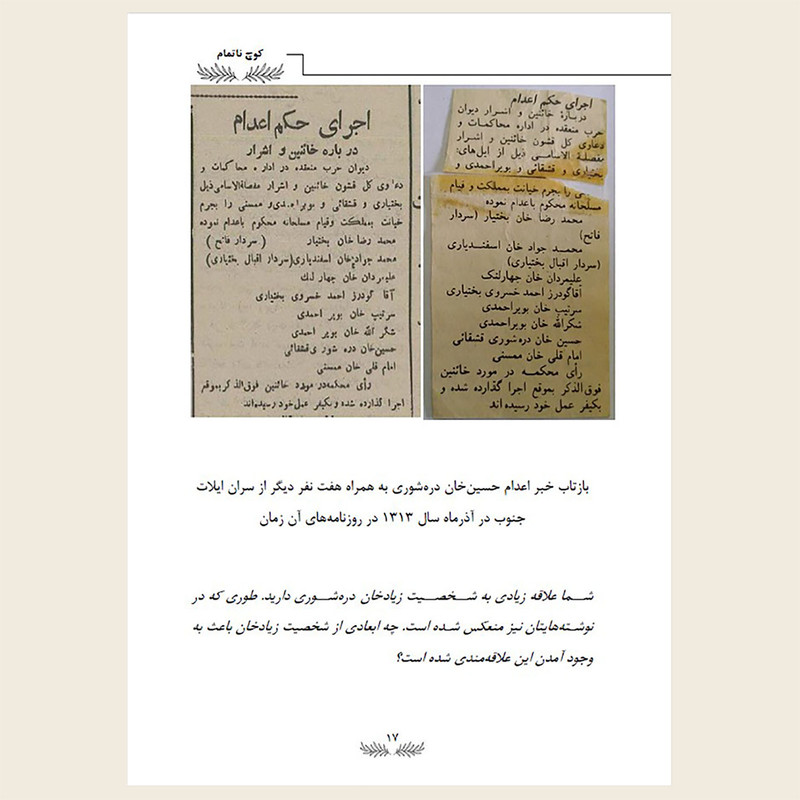 کوچ ناتمام
اجرای حکم اعدام
درباره خائنین و اشرار
دیوان حرب منعقده در اداره محاکمات و
دعاوی کل قشون خائنین و اشرار مفصلةالاسامی ذیل
بختیاری و قشقائی و بویراحمدی و ممسنی را بجرم
خیانت بمملکت وقیام مسلحانه محکوم باعدام نموده
محمد رضا خان بختیار (سردار فاتح)
محمد جوادخان اسفندیاری(سردار اقبال بختیاری)
علیمردان خان چهار لنک
آقا گودرز احمد خسروی بختیاری
سرتیپ خان بویر احمدی
شکر الله خان بویر احمدی
حسین‌خان دره شوری قشقائی
امام قلی خان ممسنی
رأی محکمه‌در مورد خائنین فوق‌الذکر بموقع
اجرا گذارده شده و بکیفر عمل خود رسیده‌اند
اجرای حکم اعدام
دربارهٔ خائنین و اشرار دیوان
حرب منعقده در اداره محاکمات و
دعاوی کل قشون خائنین و اشرار
مفصلة الاسامی ذیل از ایل‌های:
بختیاری و قشقائی و بویراحمدی و
را بجرم خیانت بمملکت و قیام
مسلحانه محکوم باعدام نموده
محمد رضا خان بختیار (سردار
فاتح)
محمــد جواد خان اسفنــدیاری
(سردار اقبال بختیاری)
علیمردان خان چهارلنک
آقاگودرز احمد خسروی بختیاری
سرتیپ خان بویراحمدی
شکرالله خان بویراحمدی
حسین خان دره‌شوری قشقائی
امام قلی خان ممسنی
رأی محکمه در مورد خائنین
فوق‌الذکر بموقع اجرا گذارده شده و
بکیفر عمل خود رسیده اند
بازتاب خبر اعدام حسین‌خان دره‌شوری به همراه هفت نفر دیگر از سران ایلات
جنوب در آذرماه سال ۱۳۱۳ در روزنامه‌های آن زمان
شـما علاقه زیادی به شـخصـیت زیادخان دره‌شـوری دارید. طوری که در
نوشـته‌هایتان نیز منعکس شـده است. چه ابعادی از شخصیت زیادخان باعث به
وجود آمدن این علاقه‌مندی شده است؟
۱۷